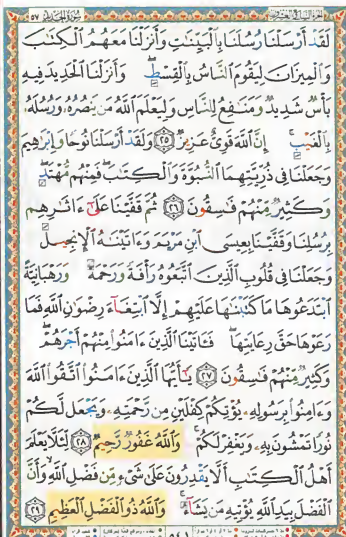 سُورَةُ الحَدِيدِ ٥٧
لَقَدْ أَرْسَلْنَا رُسُلَنَا بِالْبَيِّنَٰتِ وَأَنزَلْنَا مَعَهُمُ الْكِتَٰبَ
وَالْمِيزَانَ لِيَقُومَ النَّاسُ بِالْقِسْطِ ۖ وَأَنزَلْنَا الْحَدِيدَ فِيهِ
بَأْسٌ شَدِيدٌ وَمَنَٰفِعُ لِلنَّاسِ وَلِيَعْلَمَ اللَّهُ مَن يَنصُرُهُۥ وَرُسُلَهُۥ
بِالْغَيْبِ ۚ إِنَّ اللَّهَ قَوِيٌّ عَزِيزٌ ٢٥ وَلَقَدْ أَرْسَلْنَا نُوحًا وَإِبْرَٰهِيمَ
وَجَعَلْنَا فِي ذُرِّيَّتِهِمَا النُّبُوَّةَ وَالْكِتَٰبَ ۖ فَمِنْهُم مُّهْتَدٍ ۖ
وَكَثِيرٌ مِّنْهُمْ فَٰسِقُونَ ٢٦ ثُمَّ قَفَّيْنَا عَلَىٰٓ ءَاثَٰرِهِم
بِرُسُلِنَا وَقَفَّيْنَا بِعِيسَى ابْنِ مَرْيَمَ وَءَاتَيْنَٰهُ الْإِنجِيلَ
وَجَعَلْنَا فِي قُلُوبِ الَّذِينَ اتَّبَعُوهُ رَأْفَةً وَرَحْمَةً وَرَهْبَانِيَّةً
ابْتَدَعُوهَا مَا كَتَبْنَٰهَا عَلَيْهِمْ إِلَّا ابْتِغَآءَ رِضْوَٰنِ اللَّهِ فَمَا
رَعَوْهَا حَقَّ رِعَايَتِهَا ۖ فَـَٔاتَيْنَا الَّذِينَ ءَامَنُوا مِنْهُمْ أَجْرَهُمْ ۖ
وَكَثِيرٌ مِّنْهُمْ فَٰسِقُونَ ٢٧ يَٰٓأَيُّهَا الَّذِينَ ءَامَنُوا اتَّقُوا اللَّهَ
وَءَامِنُوا بِرَسُولِهِۦ يُؤْتِكُمْ كِفْلَيْنِ مِن رَّحْمَتِهِۦ وَيَجْعَل لَّكُمْ
نُورًا تَمْشُونَ بِهِۦ وَيَغْفِرْ لَكُمْ ۚ وَاللَّهُ غَفُورٌ رَّحِيمٌ ٢٨ لِّئَلَّا يَعْلَمَ
أَهْلُ الْكِتَٰبِ أَلَّا يَقْدِرُونَ عَلَىٰ شَيْءٍ مِّن فَضْلِ اللَّهِ ۙ وَأَنَّ
الْفَضْلَ بِيَدِ اللَّهِ يُؤْتِيهِ مَن يَشَآءُ ۚ وَاللَّهُ ذُو الْفَضْلِ الْعَظِيمِ ٢٩
٥٤١